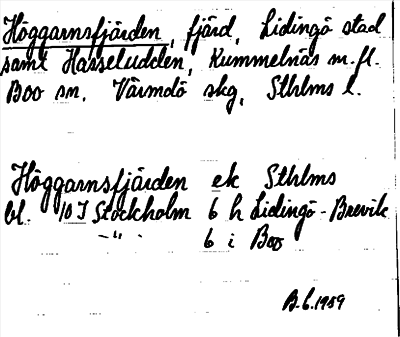 Höggarnsfjärden, fjärd, Lidingö stad
samt Hasseludden, Kummelnäs m.fl.
Boo sn, Värmdö skg, Sthlms l.
Höggarnsfjärden ek Sthlms
bl. 10 I Stockholm 6 h Lidingö-Brevik
-"- 6 i Boo
B.6.1959